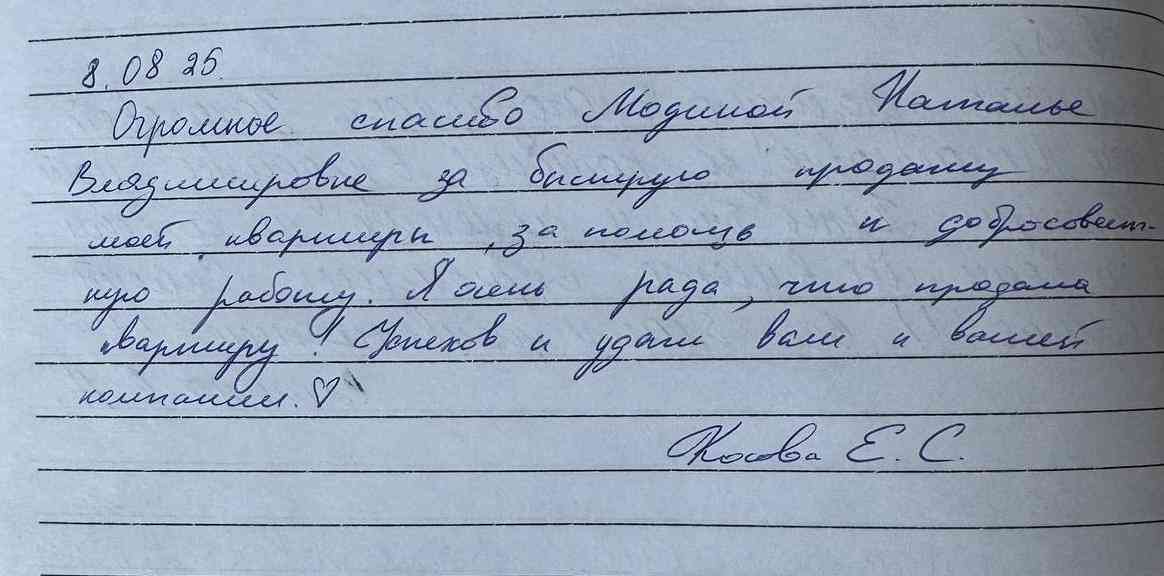 8.08 25.
Огромное спасибо Модиной Наталье
Владимировне за быструю продажу
моей квартиры, за помощь и добросовест-
ную работу. Я очень рада, что продала
квартиру! Успехов и удачи вам и вашей
компании. ♡
Косова Е. С.